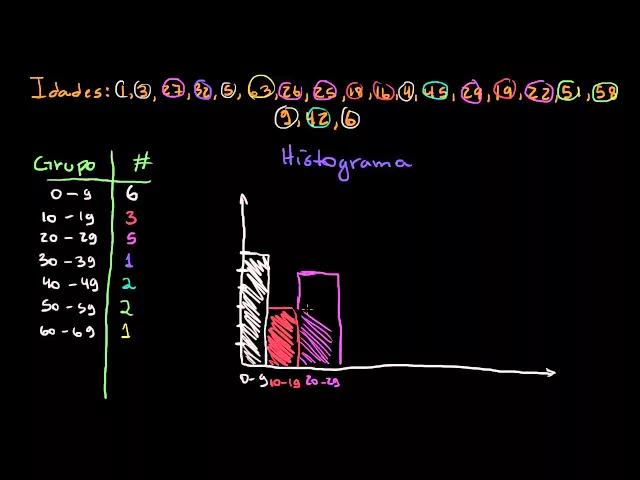 Idades: 1, 3, 27, 32, 5, 63, 26, 25, 18, 16, 4, 45, 29, 19, 22, 51, 58
9, 42, 6
Histograma
Grupo #
0-9 6
10-19 3
20-29 5
30-39 1
40-49 2
50-59 2
60-69 1
0-9 10-19 20-29